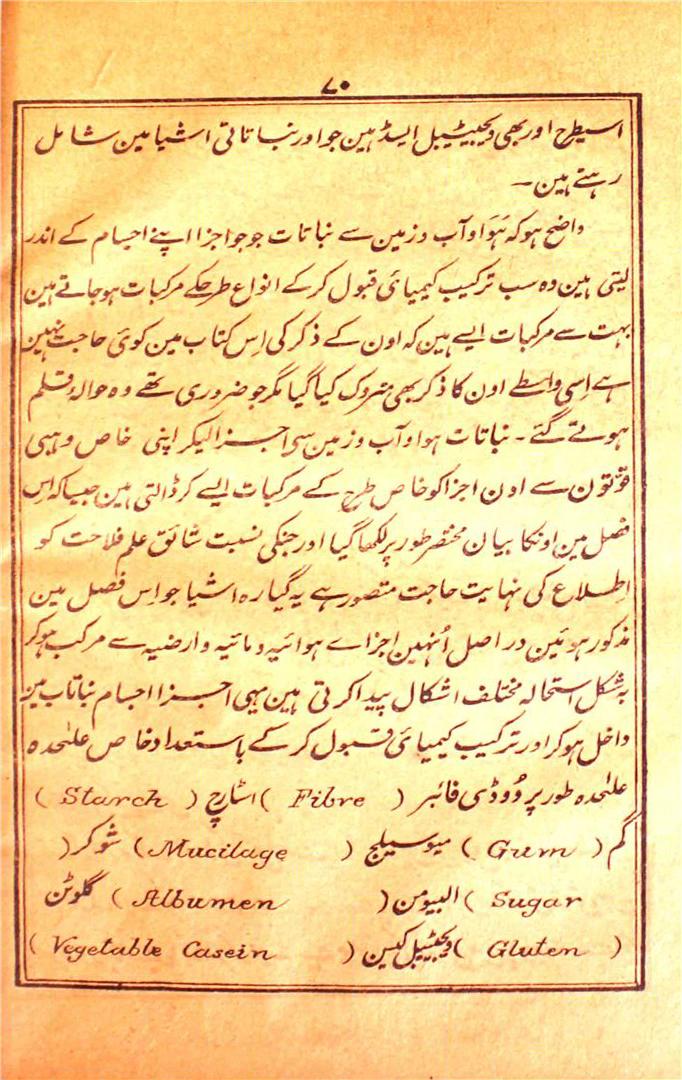 ۷۰
اسیطرح اور بھی ویجیٹیبل ایسڈ ہین جو اور نباتاتی اشیا مین شامل
رہتے ہین ۔
واضح ہو کہ ہَوَا و آب و زمین سے نباتات جو جو اجزا اپنے اجسام کے اندر
لیتی ہین وہ سب ترکیب کیمیائی قبول کرکے انواع طرحکے مرکبات ہو جاتے ہین
بہت سے مرکبات ایسے ہین کہ اون کے ذکر کی اِس کتاب مین کوئی حاجت نہین
ہے اِسی واسطے اون کا ذکر بھی متروک کیا گیا مگر جو ضروری تھے وہ حوالۂ قلم
ہوتے گئے ۔ نباتات ہوا و آب و زمین سی اجزا لیکر اپنی خاص وہبی
قوتون سے اون اجزا کو خاص طرح کے مرکبات ایسے کر ڈالتی ہین جیسا کہ اِس
فصل مین اونکا بیان مختصر طور پر لکھا گیا اور جنکی نسبت شائق علم فلاحت کو
اِطلاع کی نہایت حاجت متصور ہے یہ گیارہ اشیا جو اِس فصل مین
مذکور ہوئین در اصل اُنہین اجزاے ہوائیہ و مائیہ و ارضیہ سے مرکب ہوکر
بہ شکل استحالہ مختلف اشکال پیدا کرتی ہین یہی اجزا اجسام نباتات مین
داخل ہوکر اور ترکیب کیمیائی قبول کرکے باستعداد خاص علٰحدہ
علٰحدہ طور پر وُوڈی فائبر ( Fibre ) اسٹارچ ( Starch )
گم ( Gum ) میوسیلج ( Mucilage ) شوگر (
Sugar ) البیومن ( Albumen ) گلوٹن
( Gluten ) ویجٹیبل کیسین ( Vegetable Casein )